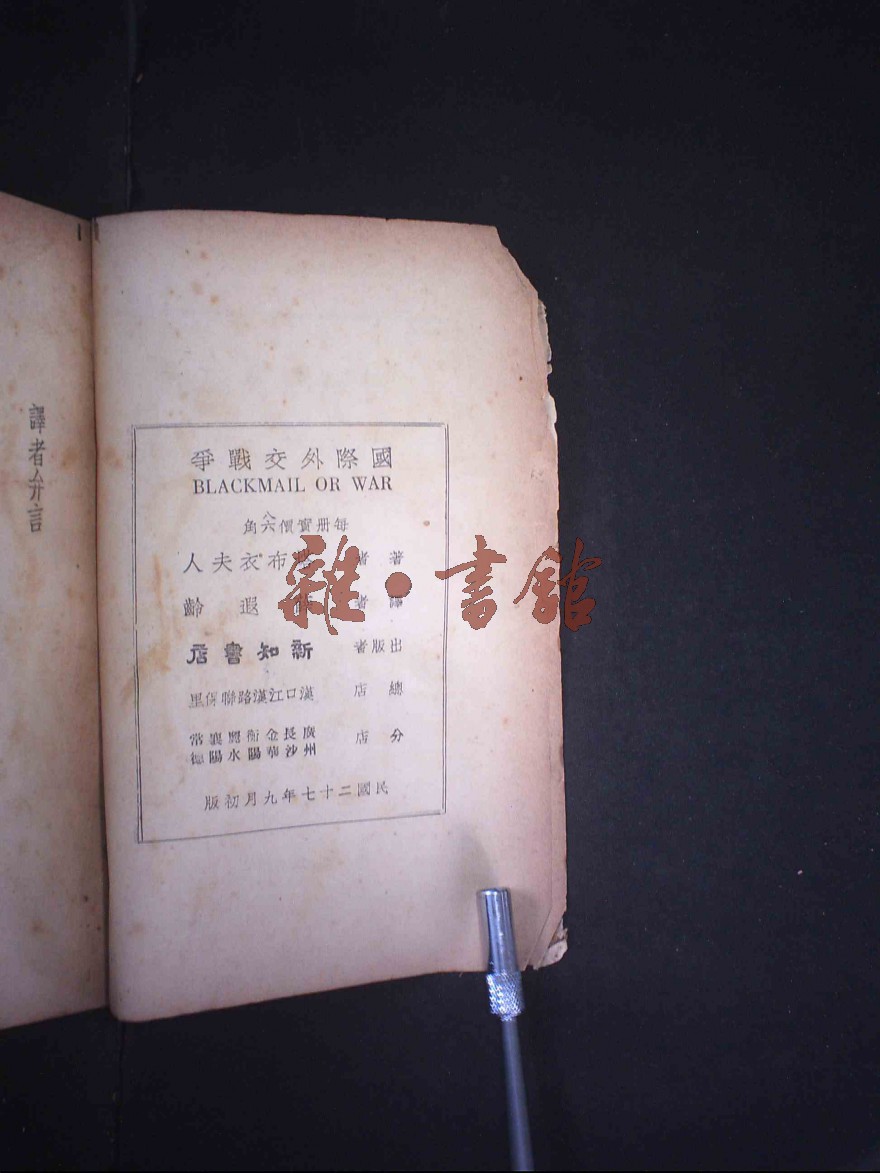 國際外交戰爭
BLACKMAIL OR WAR
每册實價六角
著者 布衣夫人
譯者 遐齡
出版者 新知書店
總店 漢口江漢路聯保里
分店 廣長金衡麗襄常
州沙華陽水陽德
民國二十七年九月初版
譯者弁言
雜·書館